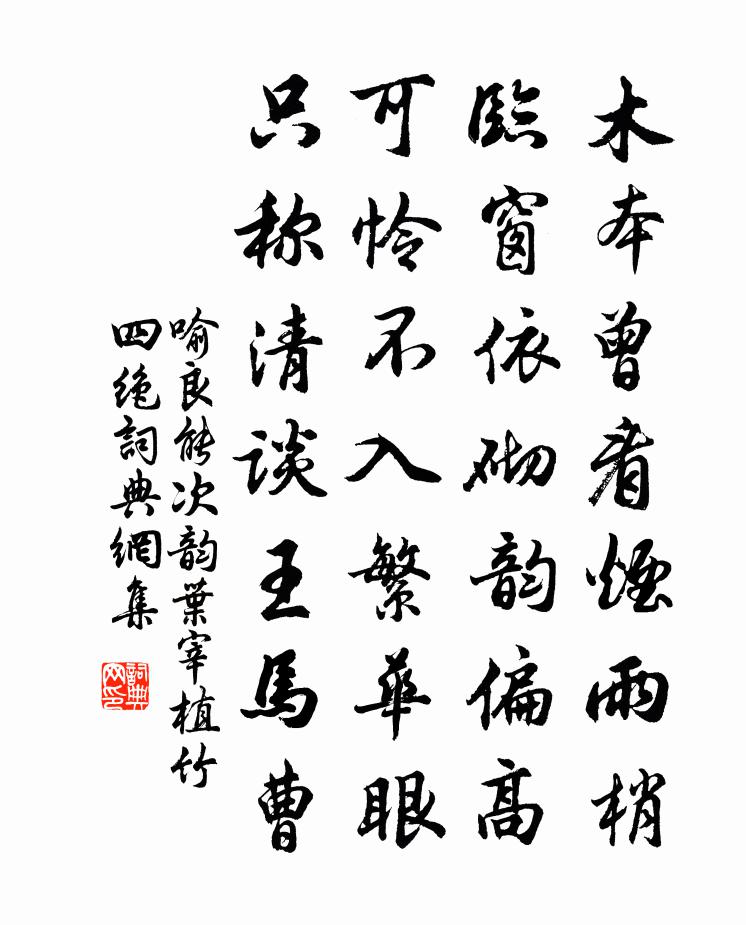 木本曾看煙雨梢
臨窗依砌韵偏高
可怜不入繁華眼
只称清談王馬曹
喻良能次韵葉宰植竹
四絶詞典網集
詞典网印